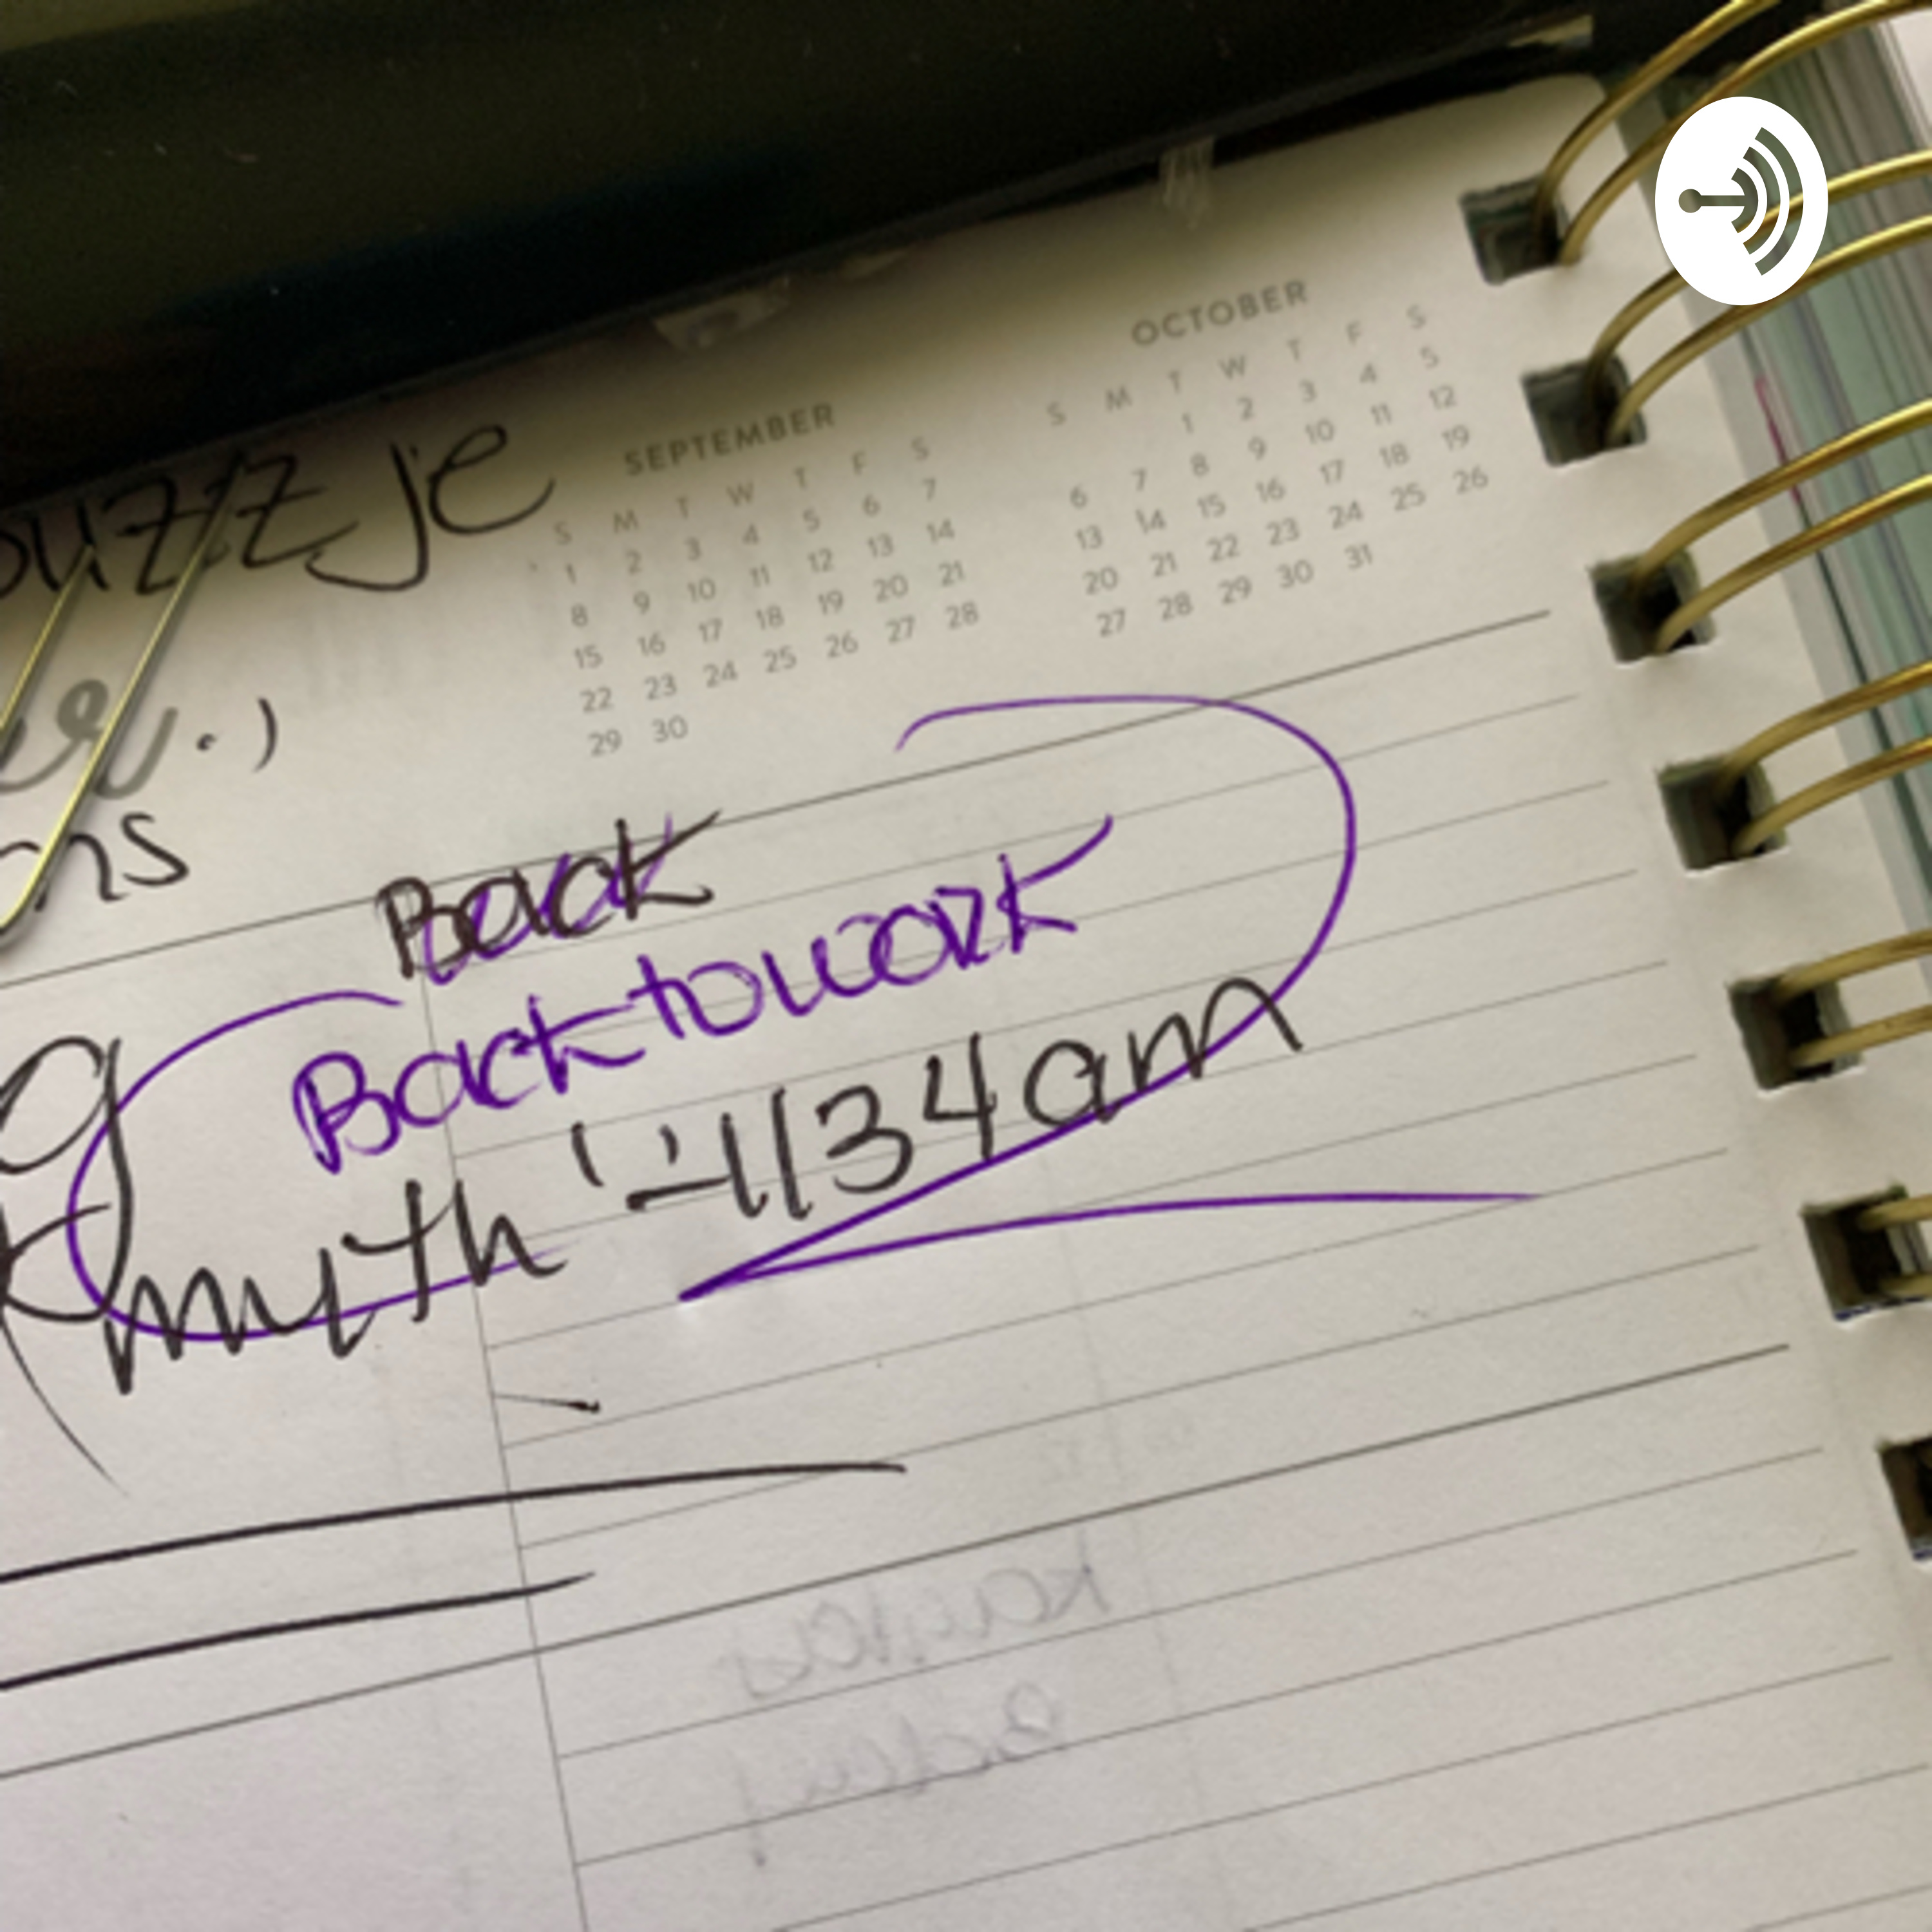 OCTOBER
S M T W T F S
1 2 3 4 5
6 7 8 9 10 11 12
13 14 15 16 17 18 19
20 21 22 23 24 25 26
27 28 29 30 31
SEPTEMBER
S M T W T F S
1 2 3 4 5 6 7
8 9 10 11 12 13 14
15 16 17 18 19 20 21
22 23 24 25 26 27 28
29 30
Back
Back to work
myth
34am